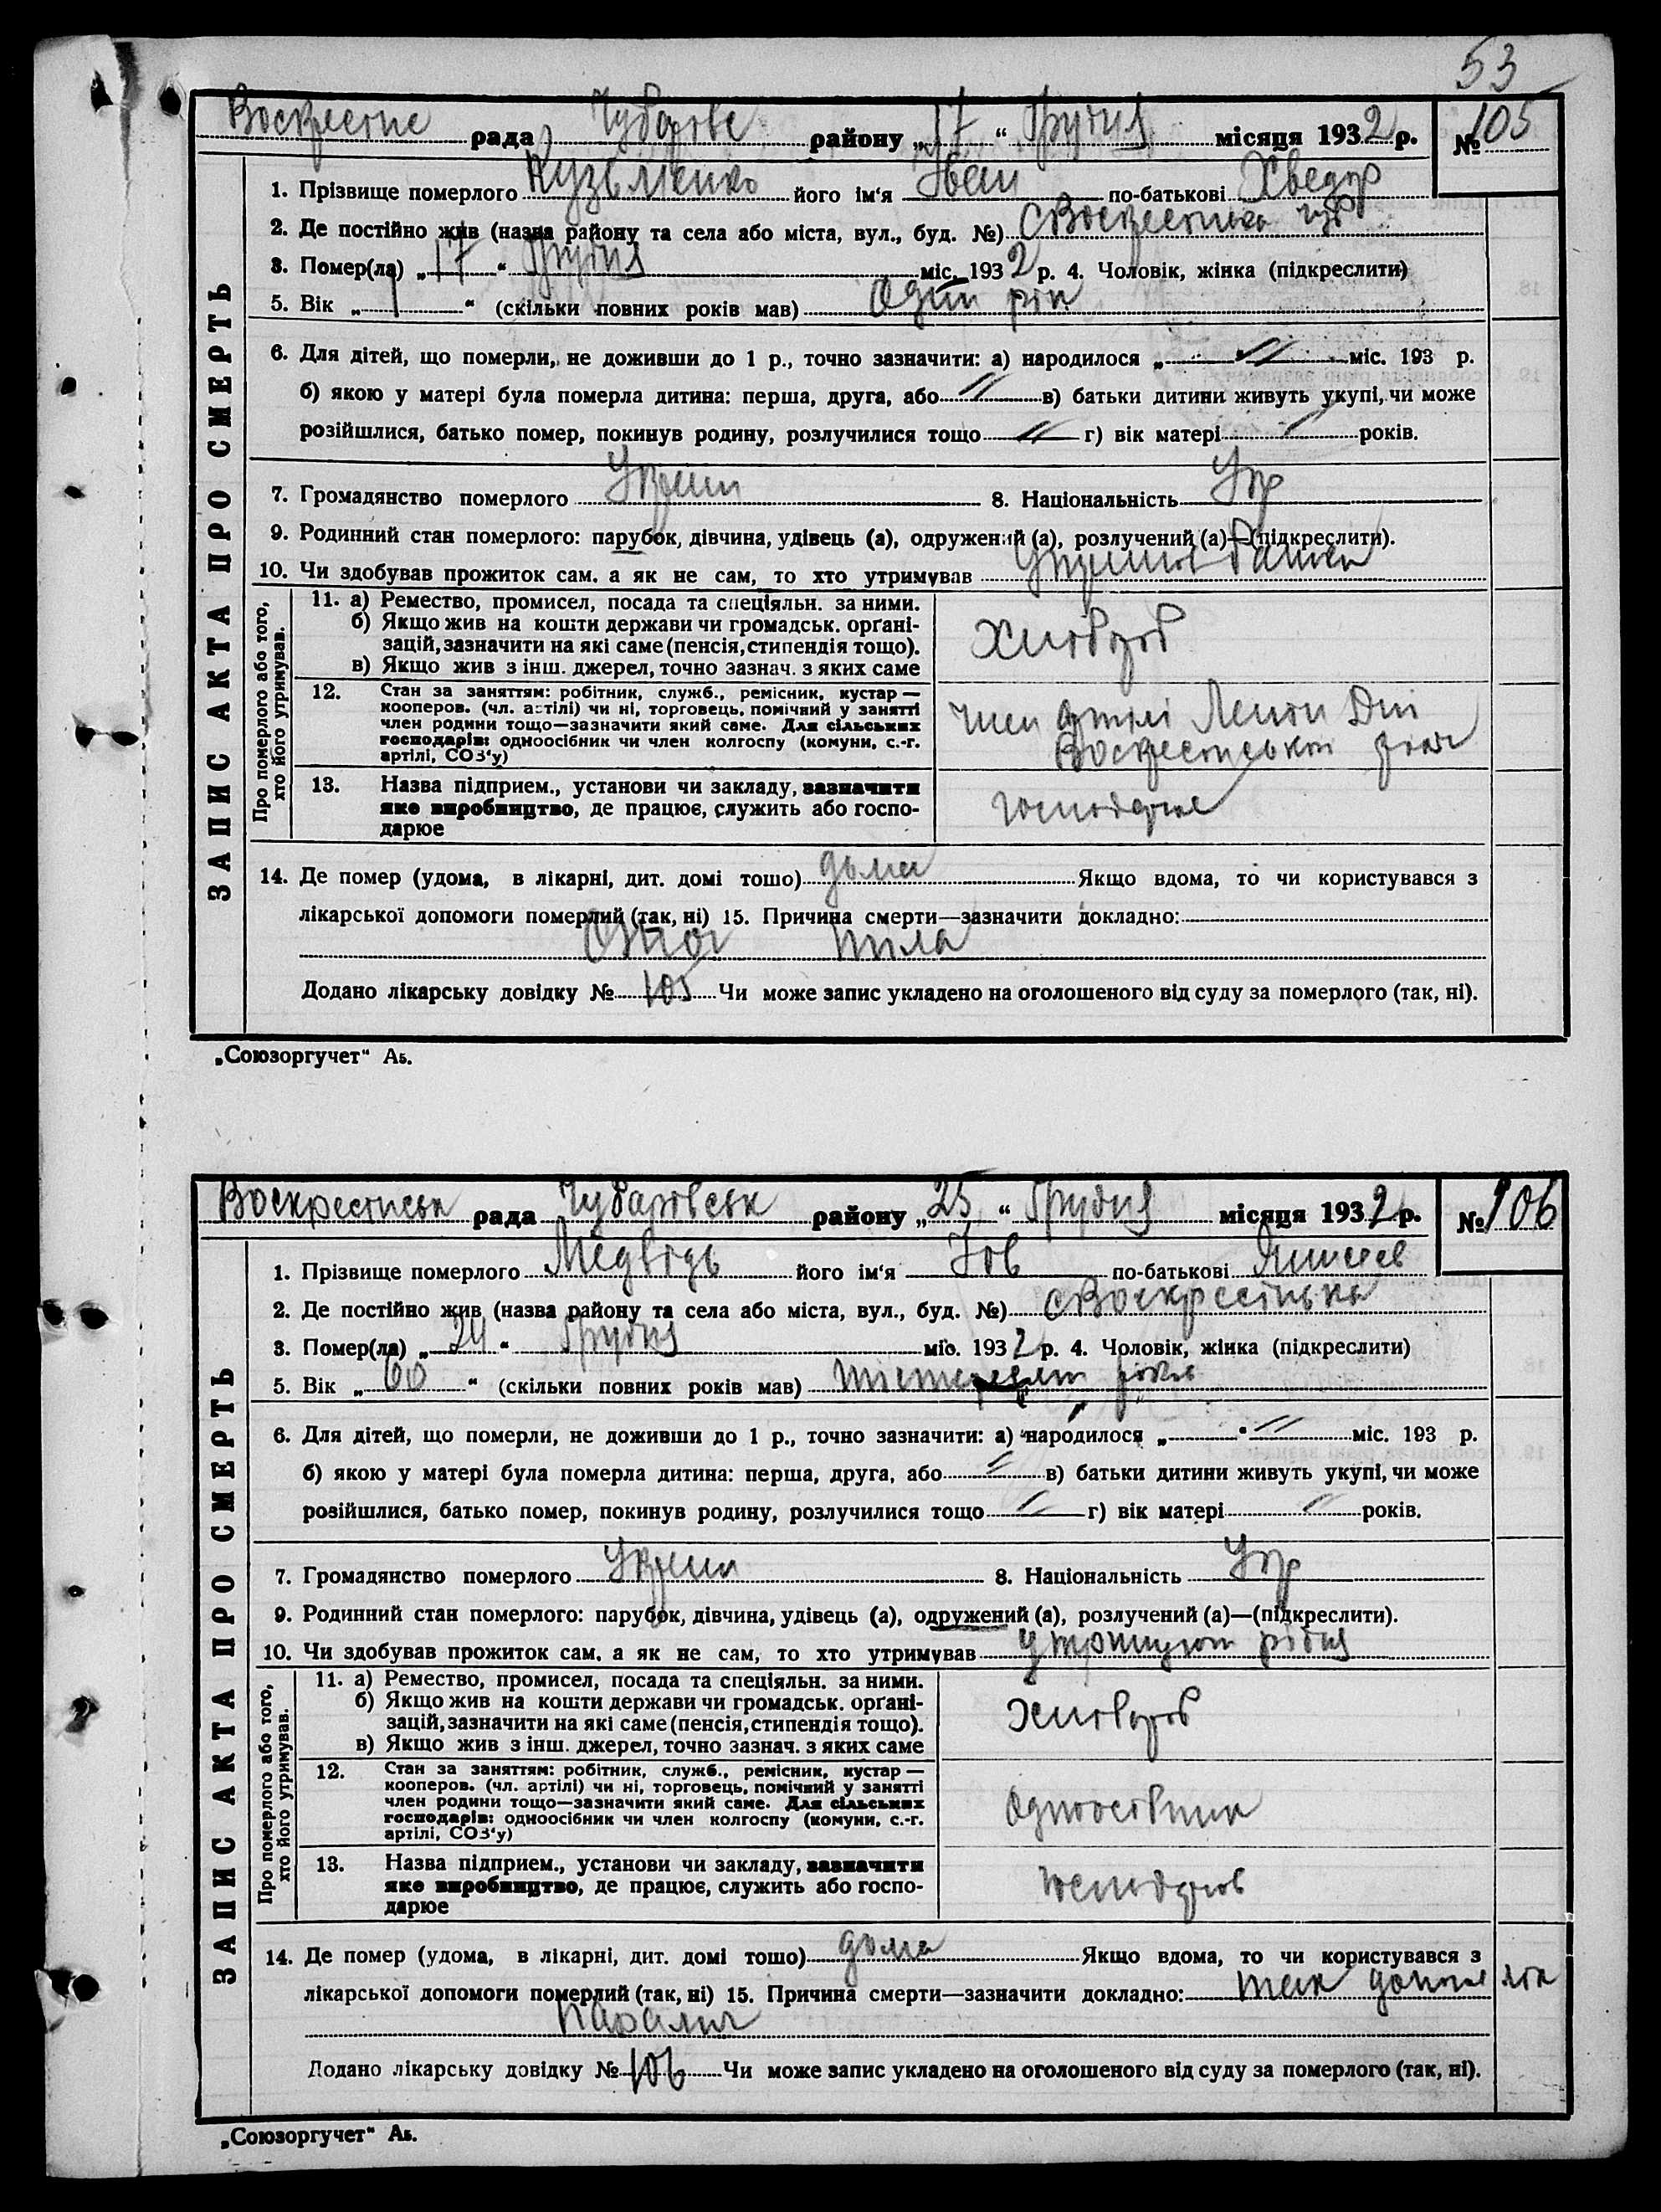 53
Воскресенс рада Чубарівс району „17“ Грудня місяця 1932 р. № 105
1. Прізвище померлого Кузьменко його ім‘я Іван по-батькові Хведор
2. Де постійно жив (назва району та села або міста, вул., буд. №) с Воскресенка Чуб
3. Помер(ла) „17“ Грудня міс. 1932 р. 4. Чоловік, жінка (підкреслити)
5. Вік „1“ (скільки повних років мав) Один рік
6. Для дітей, що померли, не доживши до 1 р., точно зазначити: а) народилося „ “ міс. 193 р.
б) якою у матері була померла дитина: перша, друга, або в) батьки дитини живуть укупі, чи може
розійшлися, батько помер, покинув родину, розлучилися тощо г) вік матері років.
7. Громадянство померлого Україн 8. Національність Укр
9. Родинний стан померлого: парубок, дівчина, удівець (а), одружений (а), розлучений (а)—(підкреслити).
10. Чи здобував прожиток сам, а як не сам, то хто утримував
ЗАПИС АКТА ПРО СМЕРТЬ
Про померлого або того, хто його утримував.
11. а) Ремество, промисел, посада та спеціяльн. за ними.
б) Якщо жив на кошти держави чи громадськ. орґані-
зацій, зазначити на які саме (пенсія, стипендія тощо).
в) Якщо жив з інш. джерел, точно зазнач. з яких саме
Хлібороб
12. Стан за заняттям: робітник, служб., ремісник, кустар —
кооперов. (чл. артілі) чи ні, торговець, помічний у занятті
член родини тощо—зазначити який саме. Для сільських
господарів: одноосібник чи член колгоспу (комуни, с.-г.
артілі, СОЗ‘у)
член артілі
Воскресенської
13. Назва підприєм., установи чи закладу, зазначити
яке виробництво, де працює, служить або госпо-
дарює
господарює
14. Де помер (удома, в лікарні, дит. домі тощо) дома Якщо вдома, то чи користувався з
лікарської допомоги померлий (так, ні) 15. Причина смерти—зазначити докладно:
тіла
Додано лікарську довідку № 105 Чи може запис укладено на оголошеного від суду за померлого (так, ні).
„Союзоргучет“ А5.
Воскресенськ рада Чубарівськ району „25“ Грудня місяця 1932 р. № 106
1. Прізвище померлого Медвідь його ім‘я Іов по-батькові
2. Де постійно жив (назва району та села або міста, вул., буд. №) с Воскресенка
3. Помер(ла) „24“ Грудня міс. 1932 р. 4. Чоловік, жінка (підкреслити)
5. Вік „60“ (скільки повних років мав) шістдесят років
6. Для дітей, що померли, не доживши до 1 р., точно зазначити: а) народилося „ “ міс. 193 р.
б) якою у матері була померла дитина: перша, друга, або в) батьки дитини живуть укупі, чи може
розійшлися, батько помер, покинув родину, розлучилися тощо г) вік матері років.
7. Громадянство померлого Україн 8. Національність Укр
9. Родинний стан померлого: парубок, дівчина, удівець (а), одружений (а), розлучений (а)—(підкреслити).
10. Чи здобував прожиток сам, а як не сам, то хто утримував
ЗАПИС АКТА ПРО СМЕРТЬ
Про померлого або того, хто його утримував.
11. а) Ремество, промисел, посада та спеціяльн. за ними.
б) Якщо жив на кошти держави чи громадськ. орґані-
зацій, зазначити на які саме (пенсія, стипендія тощо).
в) Якщо жив з інш. джерел, точно зазнач. з яких саме
Хлібороб
12. Стан за заняттям: робітник, служб., ремісник, кустар —
кооперов. (чл. артілі) чи ні, торговець, помічний у занятті
член родини тощо—зазначити який саме. Для сільських
господарів: одноосібник чи член колгоспу (комуни, с.-г.
артілі, СОЗ‘у)
одноосібник
13. Назва підприєм., установи чи закладу, зазначити
яке виробництво, де працює, служить або госпо-
дарює
14. Де помер (удома, в лікарні, дит. домі тощо) дома Якщо вдома, то чи користувався з
лікарської допомоги померлий (так, ні) 15. Причина смерти—зазначити докладно:
Параліч
Додано лікарську довідку № 106 Чи може запис укладено на оголошеного від суду за померлого (так, ні).
„Союзоргучет“ А5.